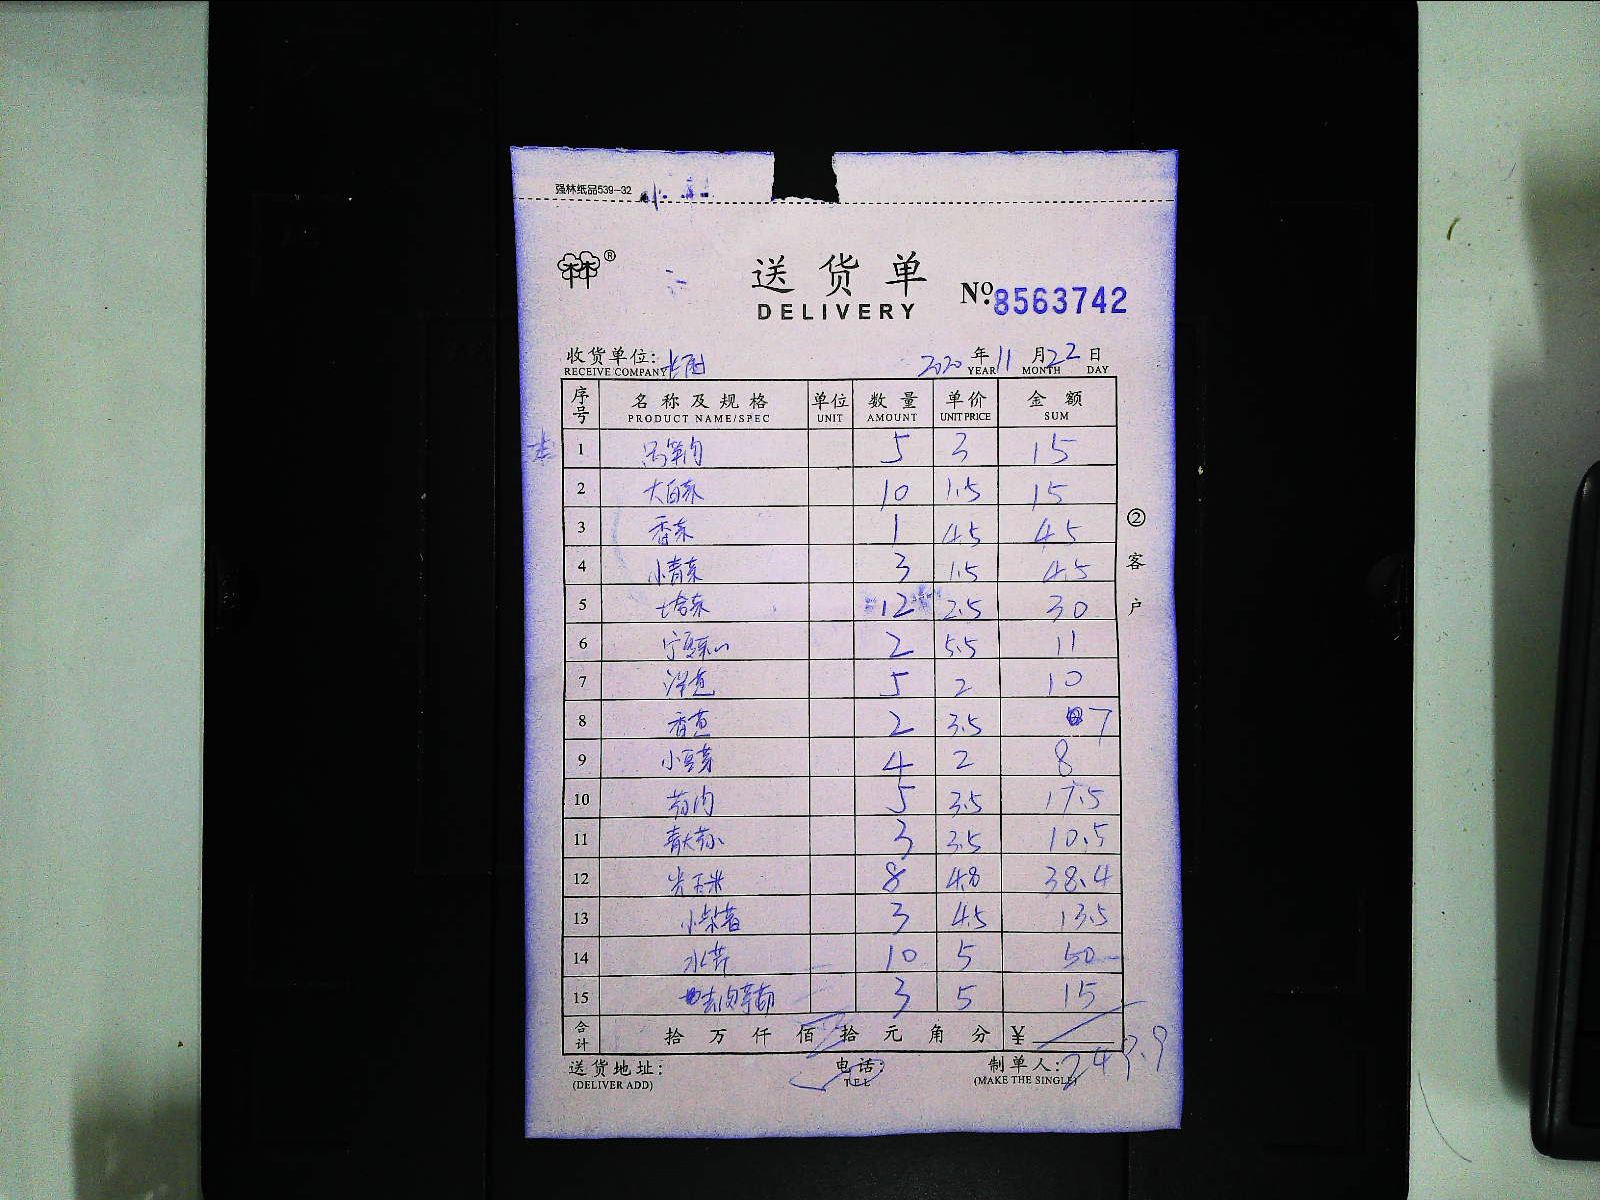 强林纸品539-32
®
送货单
DELIVERY
No. 8563742
收货单位: 2020年11月22日
RECEIVE COMPANY YEAR MONTH DAY
序号 名称及规格 单位 数量 单价 金额
PRODUCT NAME/SPEC UNIT AMOUNT UNIT PRICE SUM
1 5 3 15
2 大白菜 10 1.5 15
3 香菜 1 4.5 4.5
4 小青菜 3 1.5 4.5
5 12 2.5 30
6 宁夏菜心 2 5.5 11
7 洋葱 5 2 10
8 香葱 2 3.5 7
9 小豆芽 4 2 8
10 5 3.5 17.5
11 3 3.5 10.5
12 玉米 8 4.8 38.4
13 小紫薯 3 4.5 13.5
14 水芹 10 5 50
15 3 5 15
合计 拾万仟佰拾元角分 ¥
249.9
送货地址: 电话: 制单人:
(DELIVER ADD) TEL (MAKE THE SINGLE)
②客户